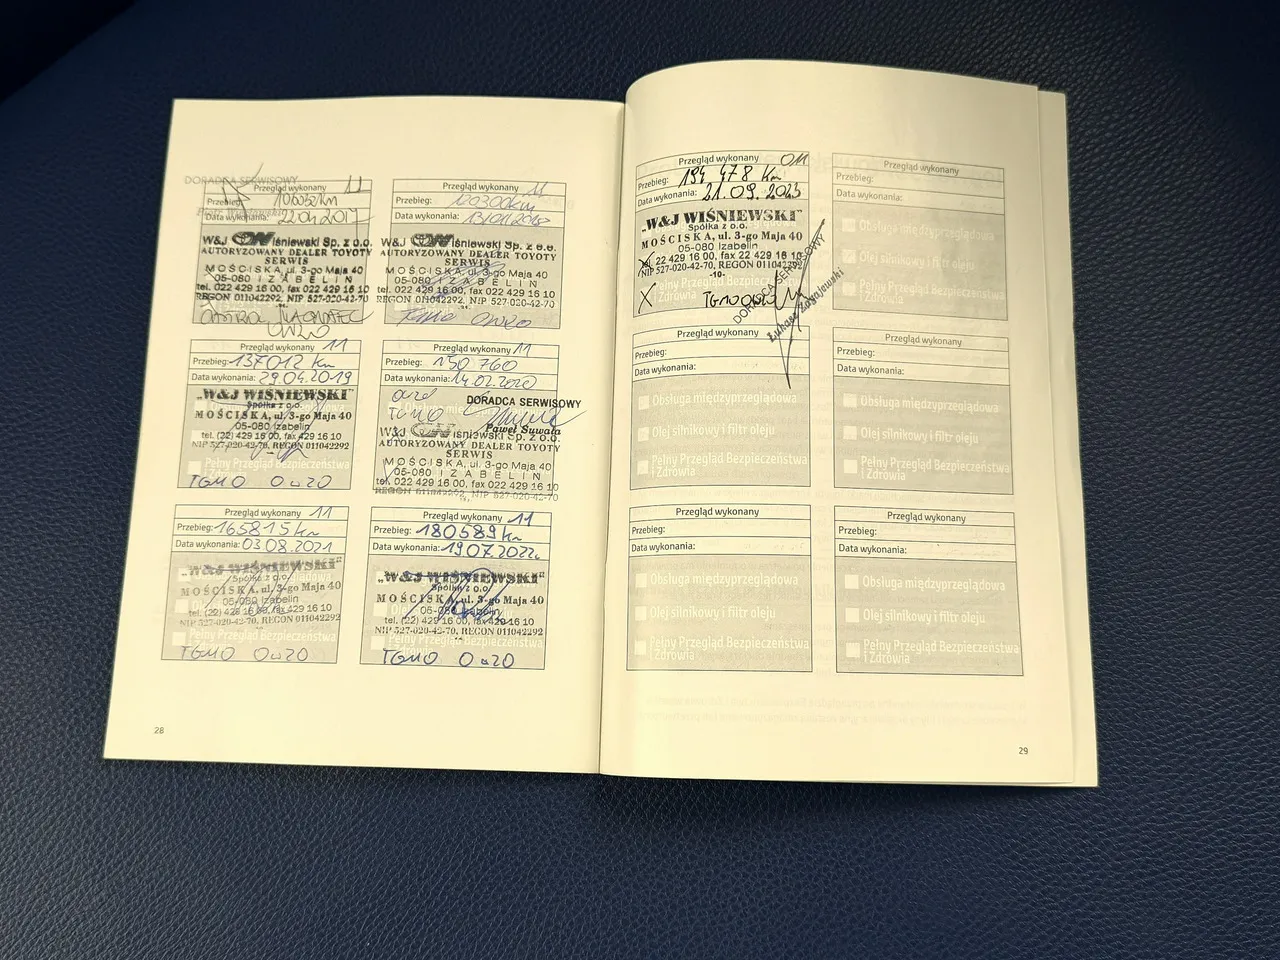 DORADCA SERWISOWY
Przegląd wykonany 11
Przebieg: km
Data wykonania: 22.04.2017
W&J Wiśniewski Sp. z o.o.
AUTORYZOWANY DEALER TOYOTY
SERWIS
MOŚCISKA, ul. 3-go Maja 40
05-080 IZABELIN
tel. 022 429 16 00, fax 022 429 16 10
REGON 011042292, NIP 527-020-42-70
Przegląd wykonany 11
Przebieg: 120300km
Data wykonania:
W&J Wiśniewski Sp. z o.o.
AUTORYZOWANY DEALER TOYOTY
SERWIS
MOŚCISKA, ul. 3-go Maja 40
05-080 IZABELIN
tel. 022 429 16 00, fax 022 429 16 10
REGON 011042292, NIP 527-020-42-70
TGMO 0W20
Przegląd wykonany 11
Przebieg: 137012 km
Data wykonania: 29.04.2019
„W&J WIŚNIEWSKI"
Spółka z o.o.
MOŚCISKA, ul. 3-go Maja 40
05-080 Izabelin
tel. (22) 429 16 00, fax 429 16 10
NIP 527-020-42-70, REGON 011042292
Pełny Przegląd Bezpieczeństwa
i Zdrowia
TGMO 0w20
Przegląd wykonany 11
Przebieg: 150 760
Data wykonania: 14.02.2020
DORADCA SERWISOWY
Paweł Sywała
W&J Wiśniewski Sp. z o.o.
AUTORYZOWANY DEALER TOYOTY
SERWIS
MOŚCISKA, ul. 3-go Maja 40
05-080 IZABELIN
tel. 022 429 16 00, fax 022 429 16 10
REGON 011042292, NIP 527-020-42-70
Przegląd wykonany 11
Przebieg: 165815 km
Data wykonania: 03.08.2021
„W&J WIŚNIEWSKI"
Spółka z o.o.
MOŚCISKA, ul. 3-go Maja 40
05-080 Izabelin
tel. (22) 429 16 00, fax 429 16 10
NIP 527-020-42-70, REGON 011042292
Pełny Przegląd Bezpieczeństwa
i Zdrowia
TGMO 0w20
Przegląd wykonany 11
Przebieg: 180589 km
Data wykonania: 19.07.2022r.
„W&J WIŚNIEWSKI"
Spółka z o.o.
MOŚCISKA, ul. 3-go Maja 40
05-080 Izabelin
tel. (22) 429 16 00, fax 429 16 10
NIP 527-020-42-70, REGON 011042292
Pełny Przegląd Bezpieczeństwa
i Zdrowia
TGMO 0w20
28
Przegląd wykonany 011
Przebieg: 194 478 km
Data wykonania: 21.09.2023
„W&J WIŚNIEWSKI"
Spółka z o.o.
MOŚCISKA, ul. 3-go Maja 40
05-080 Izabelin
tel. 22 429 16 00, fax 22 429 16 10
NIP 527-020-42-70, REGON 011042292
-10-
Pełny Przegląd Bezpieczeństwa
i Zdrowia
X TGMO 0W20
DORADCA SERWISOWY
Łukasz Zagajewski
Przegląd wykonany
Przebieg:
Data wykonania:
Obsługa międzyprzeglądowa
Olej silnikowy i filtr oleju
Pełny Przegląd Bezpieczeństwa
i Zdrowia
Przegląd wykonany
Przebieg:
Data wykonania:
Obsługa międzyprzeglądowa
Olej silnikowy i filtr oleju
Pełny Przegląd Bezpieczeństwa
i Zdrowia
Przegląd wykonany
Przebieg:
Data wykonania:
Obsługa międzyprzeglądowa
Olej silnikowy i filtr oleju
Pełny Przegląd Bezpieczeństwa
i Zdrowia
Przegląd wykonany
Przebieg:
Data wykonania:
Obsługa międzyprzeglądowa
Olej silnikowy i filtr oleju
Pełny Przegląd Bezpieczeństwa
i Zdrowia
Przegląd wykonany
Przebieg:
Data wykonania:
Obsługa międzyprzeglądowa
Olej silnikowy i filtr oleju
Pełny Przegląd Bezpieczeństwa
i Zdrowia
29